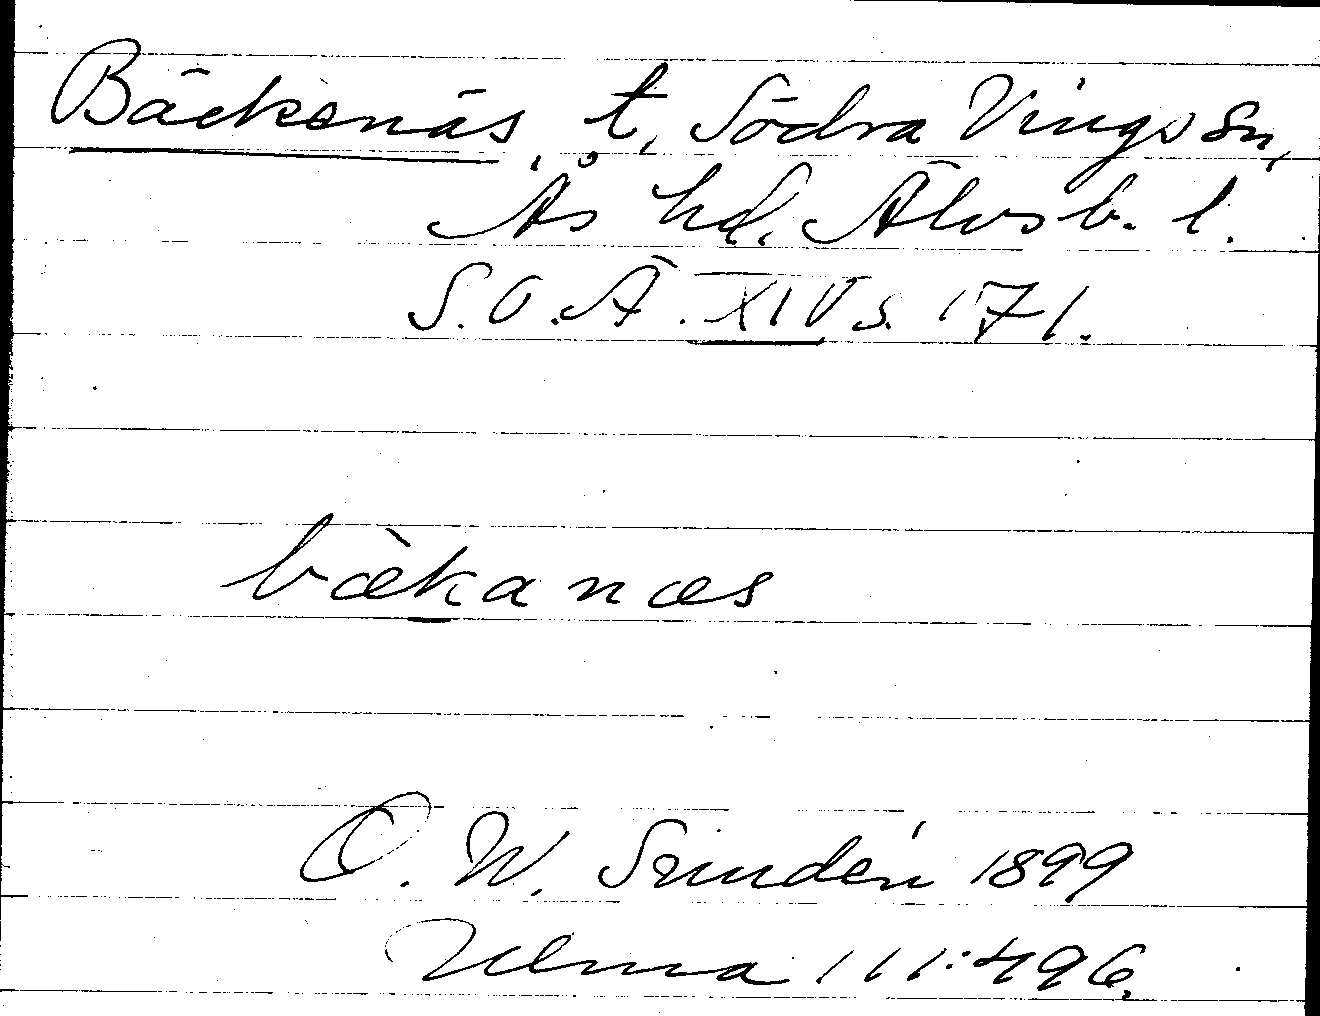 Bäckenäs, t. Södra Vings sn,
Ås hd, Älvsb. l.
S.O.Ä. XIV s. 171.
bæ̀kanæs
O. W. Sundén 1899
Ulma 111:496.